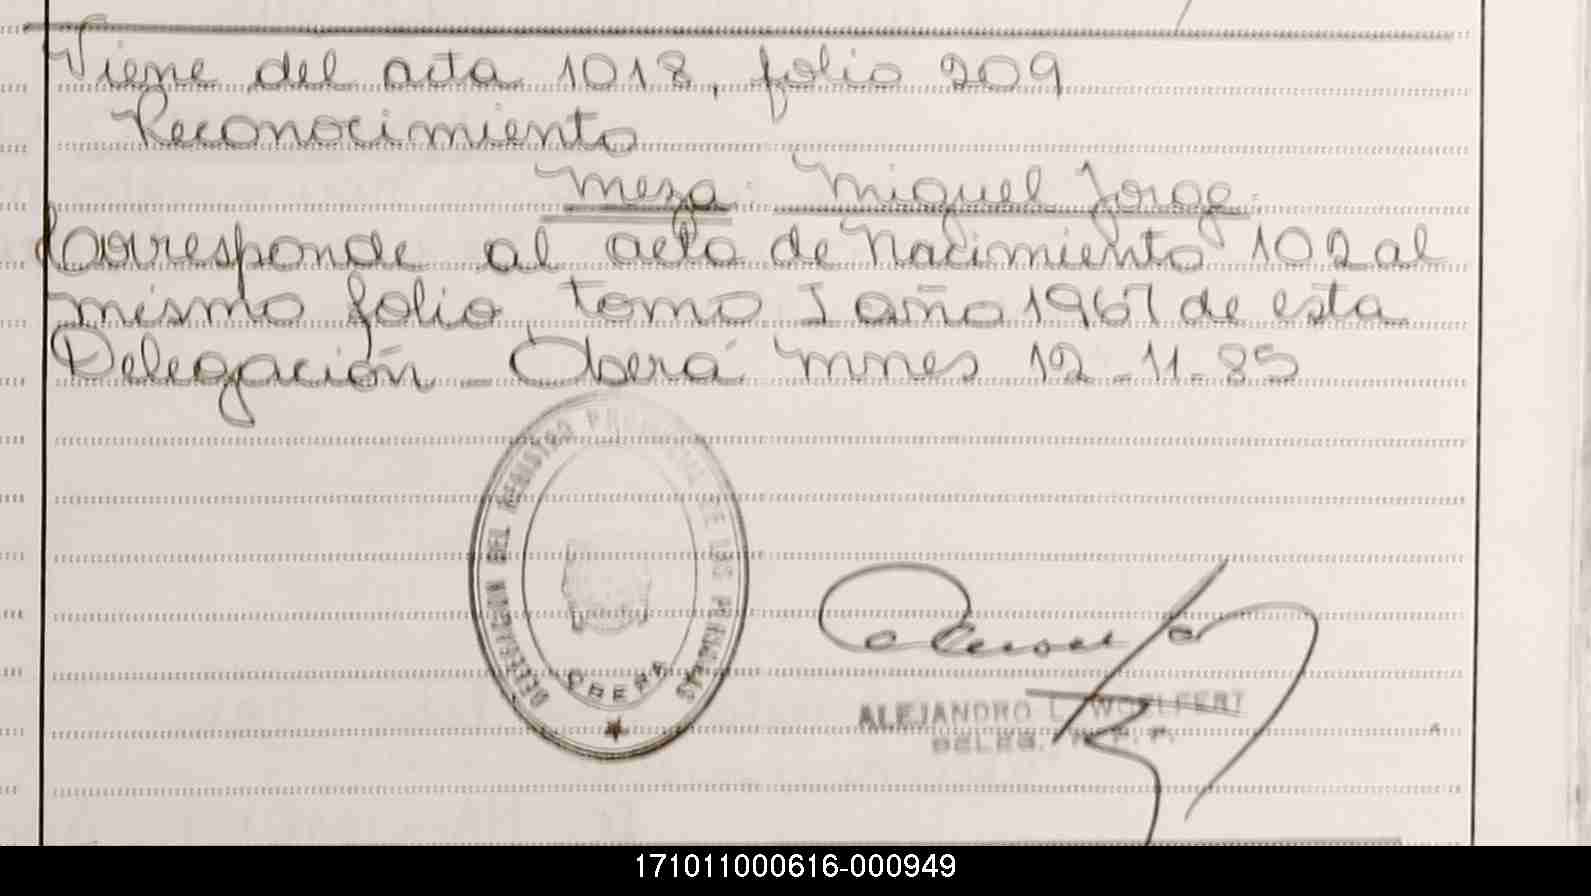 Viene del acta 1018, folio 209
Reconocimiento
Meza: Miguel Jorge.
Corresponde al acta de Nacimiento 102 al
mismo folio tomo I año 1967 de esta
Delegación - Oberá Mnes 12-11-85
DELEGACION DEL REGISTRO PROVINCIAL DE LAS PERSONAS
OBERA
ALEJANDRO L. WOELFERT
DELEG. R. P. P.
171011000616-000949